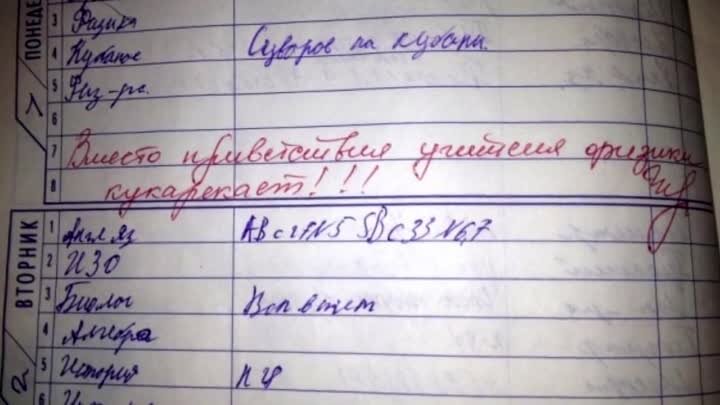 ПОНЕДЕ
3 Физика
4 Кубанов Суворов на кубани.
5 Физ-ра.
6
7 Вместо приветствия учителя физики
8 кукарекает!!!
ВТОРНИК
1 Англ яз АВ с 27 N5 SB с 33 N6,7
2 ИЗО
3 Биолог
4 Алгебра
5 История
6